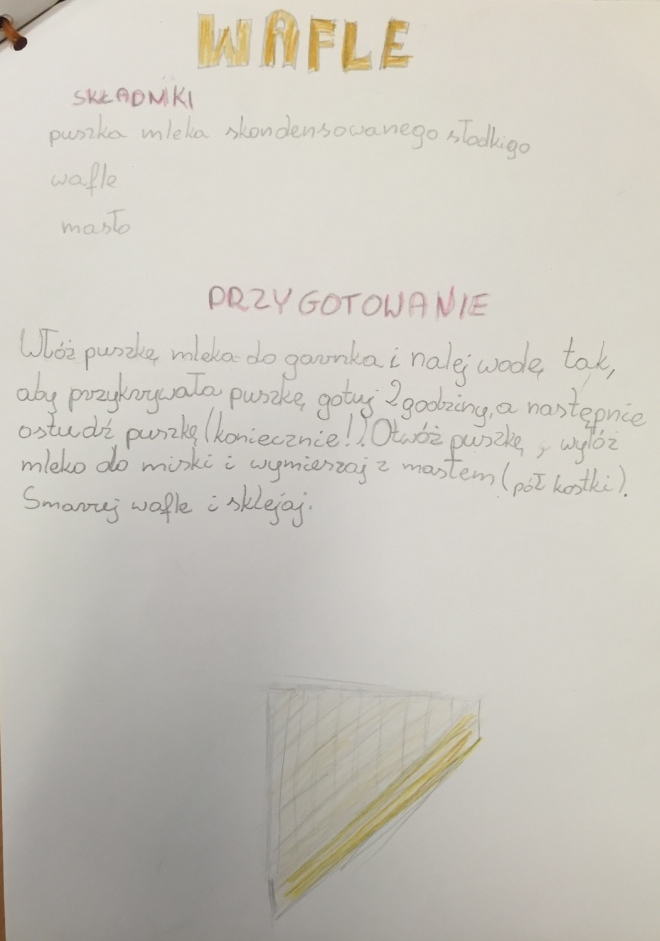 WAFLE
SKŁADNIKI
puszka mleka skondensowanego słodkigo
wafle
masło
PRZYGOTOWANIE
Włóż puszkę mleka do garnka i nalej wodę tak,
aby przykrywała puszkę, gotuj 2 godziny, a następnie
ostudź puszkę (koniecznie!). Otwóż puszkę, wyłóż
mleko do miski i wymieszaj z masłem (pół kostki).
Smaruj wafle i sklejaj.